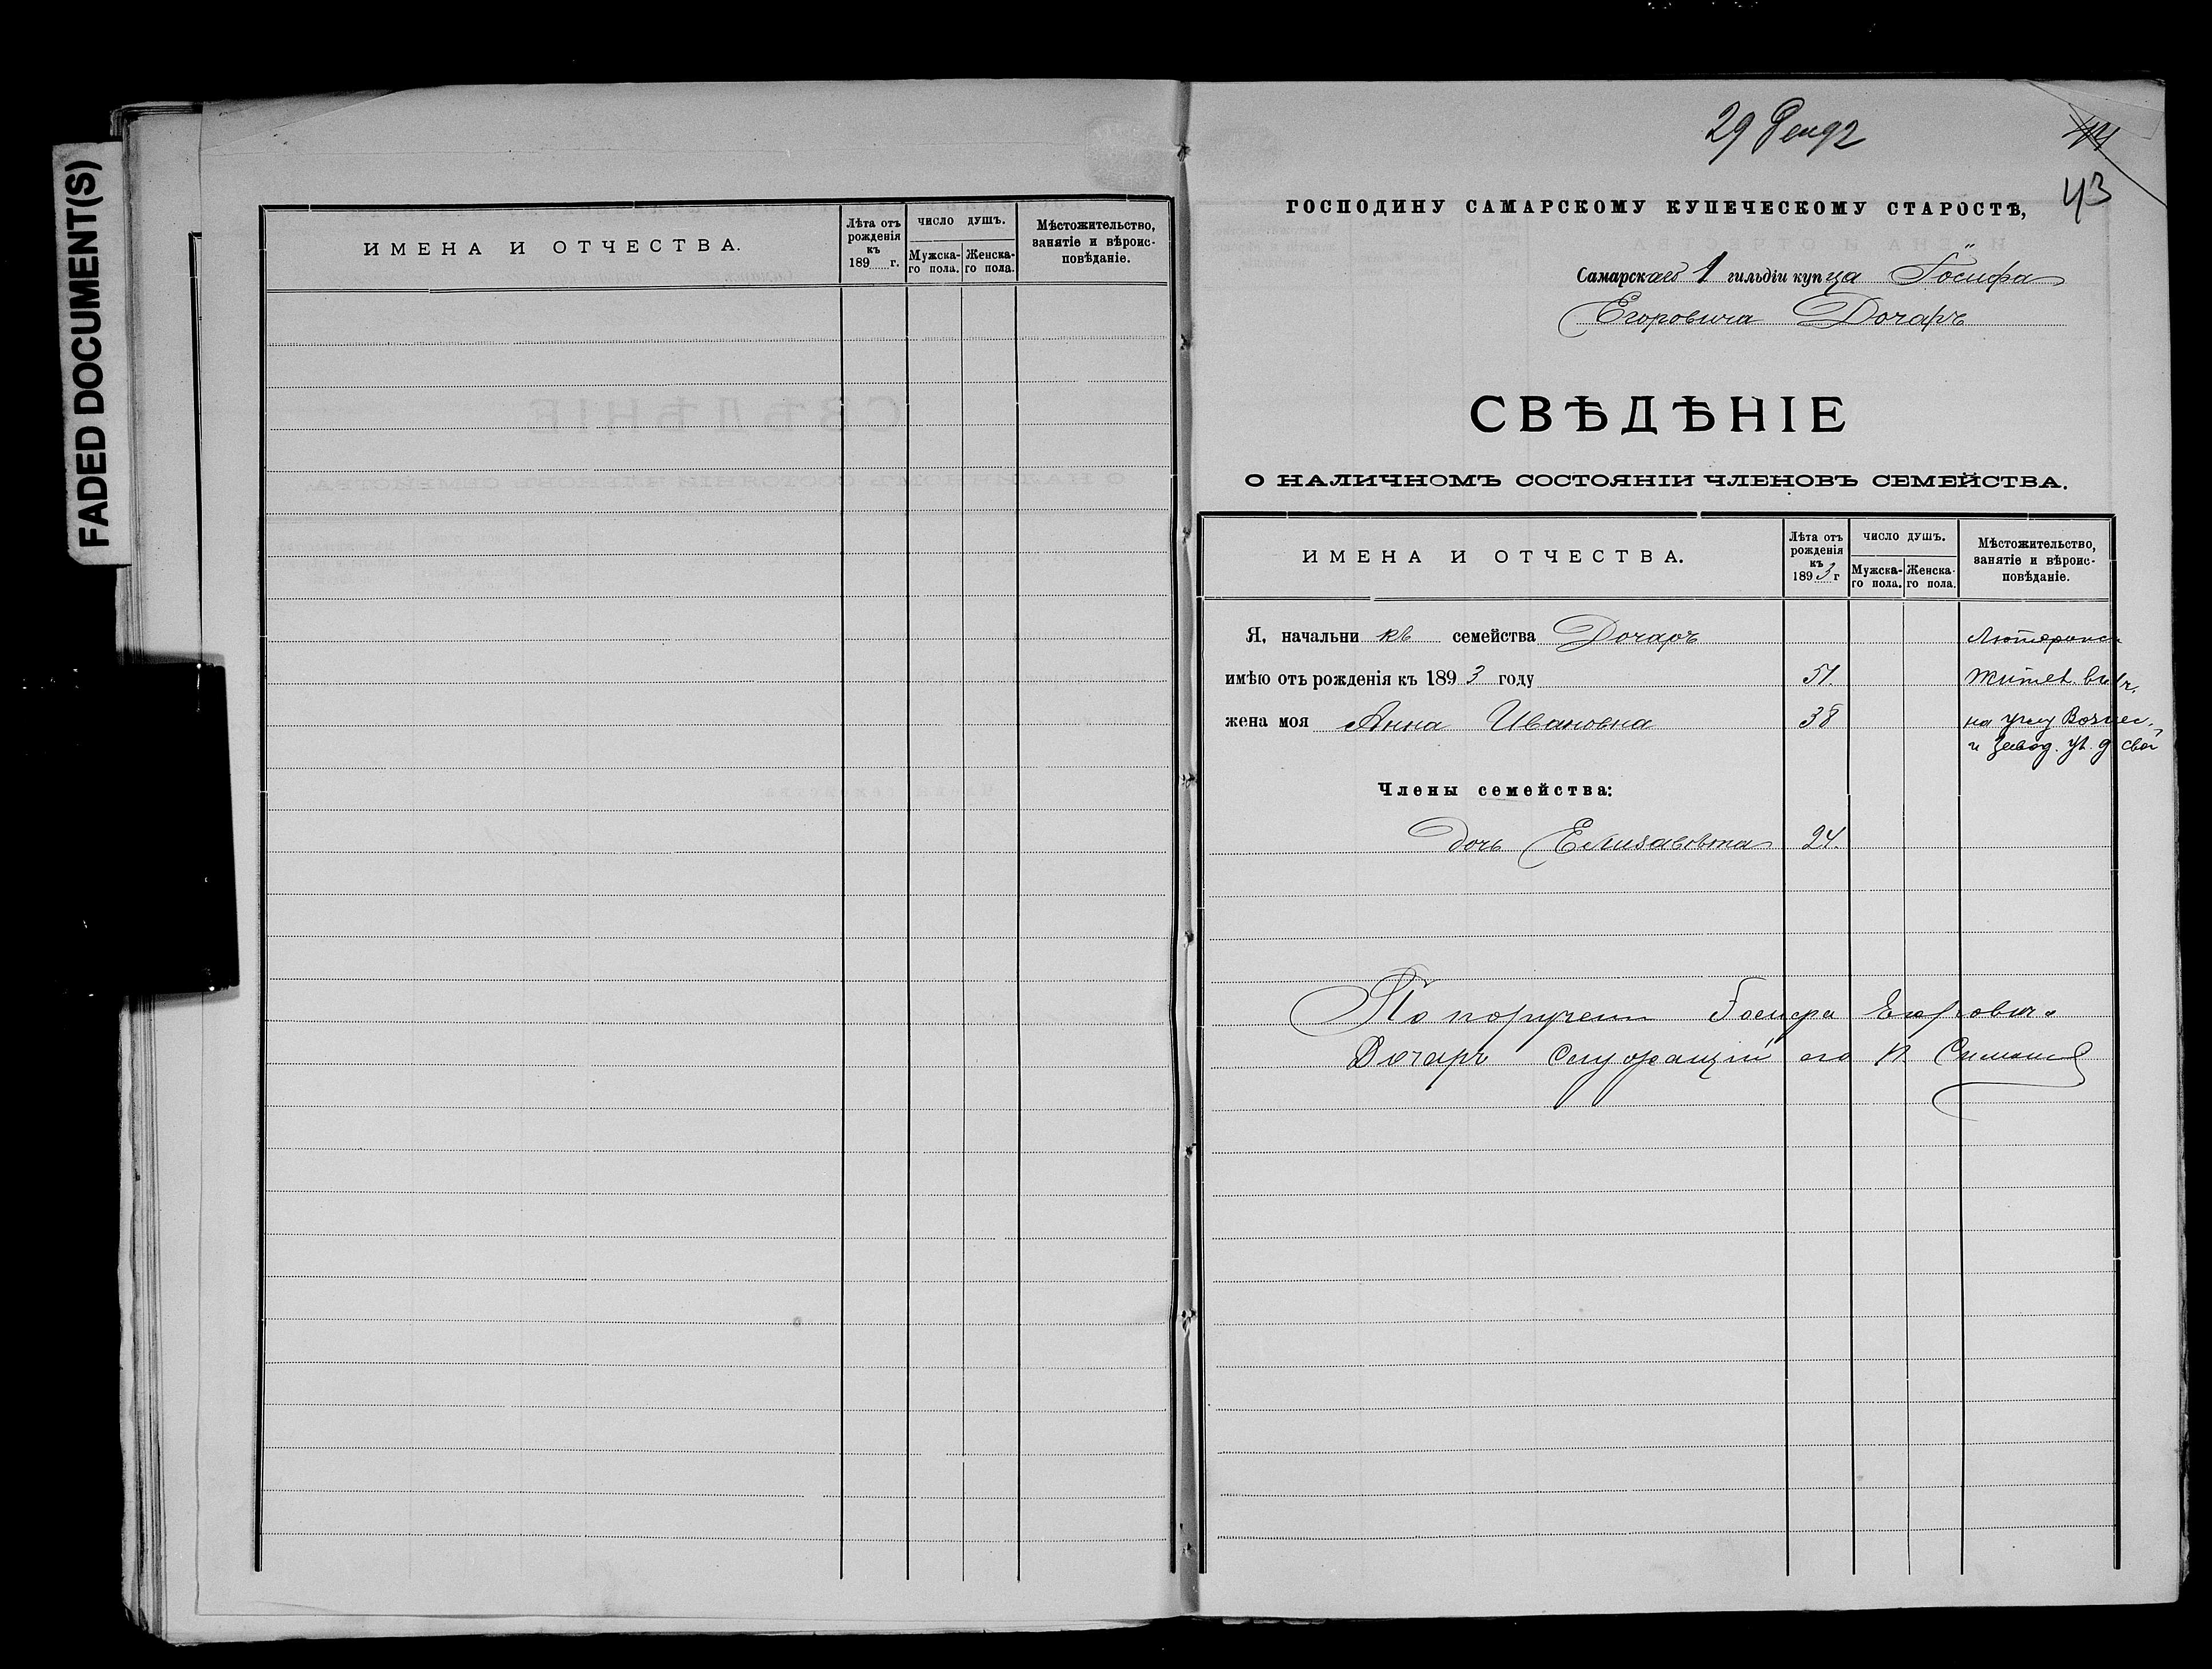 FADED DOCUMENT(S)
ИМЕНА И ОТЧЕСТВА.
Лѣта отъ рожденія къ 189 г.
ЧИСЛО ДУШЪ.
Мужска-го пола.
Женска-го пола.
Мѣстожительство, занятіе и вѣроис-повѣданіе.
29 Дек 92
44
43
ГОСПОДИНУ САМАРСКОМУ КУПЕЧЕСКОМУ СТАРОСТѢ,
Самарскаго 1 гильдіи купца Іосифа
Егоровича Дочаръ
СВѢДѢНІЕ
О НАЛИЧНОМЪ СОСТОЯНІИ ЧЛЕНОВЪ СЕМЕЙСТВА.
ИМЕНА И ОТЧЕСТВА.
Лѣта отъ рожденія къ 1893 г
ЧИСЛО ДУШЪ.
Мужска-го пола.
Женска-го пола.
Мѣстожительство, занятіе и вѣроис-повѣданіе.
Я, начальникъ семейства Дочаръ
имѣю отъ рожденія къ 1893 году 51.
Жител.
жена моя Анна Ивановна 38 на углу Вознес.
и Завод. ул. д свой
Члены семейства:
дочь Елизавѣта 24.
По порученію Іосифа Егоровича
Дочаръ служащій его